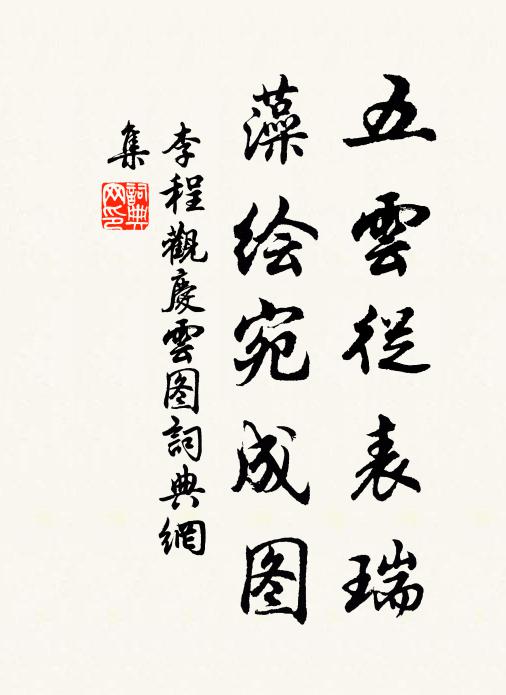 五雲從表瑞
藻绘宛成图
李程觀慶雲图詞典網
集
詞典網印